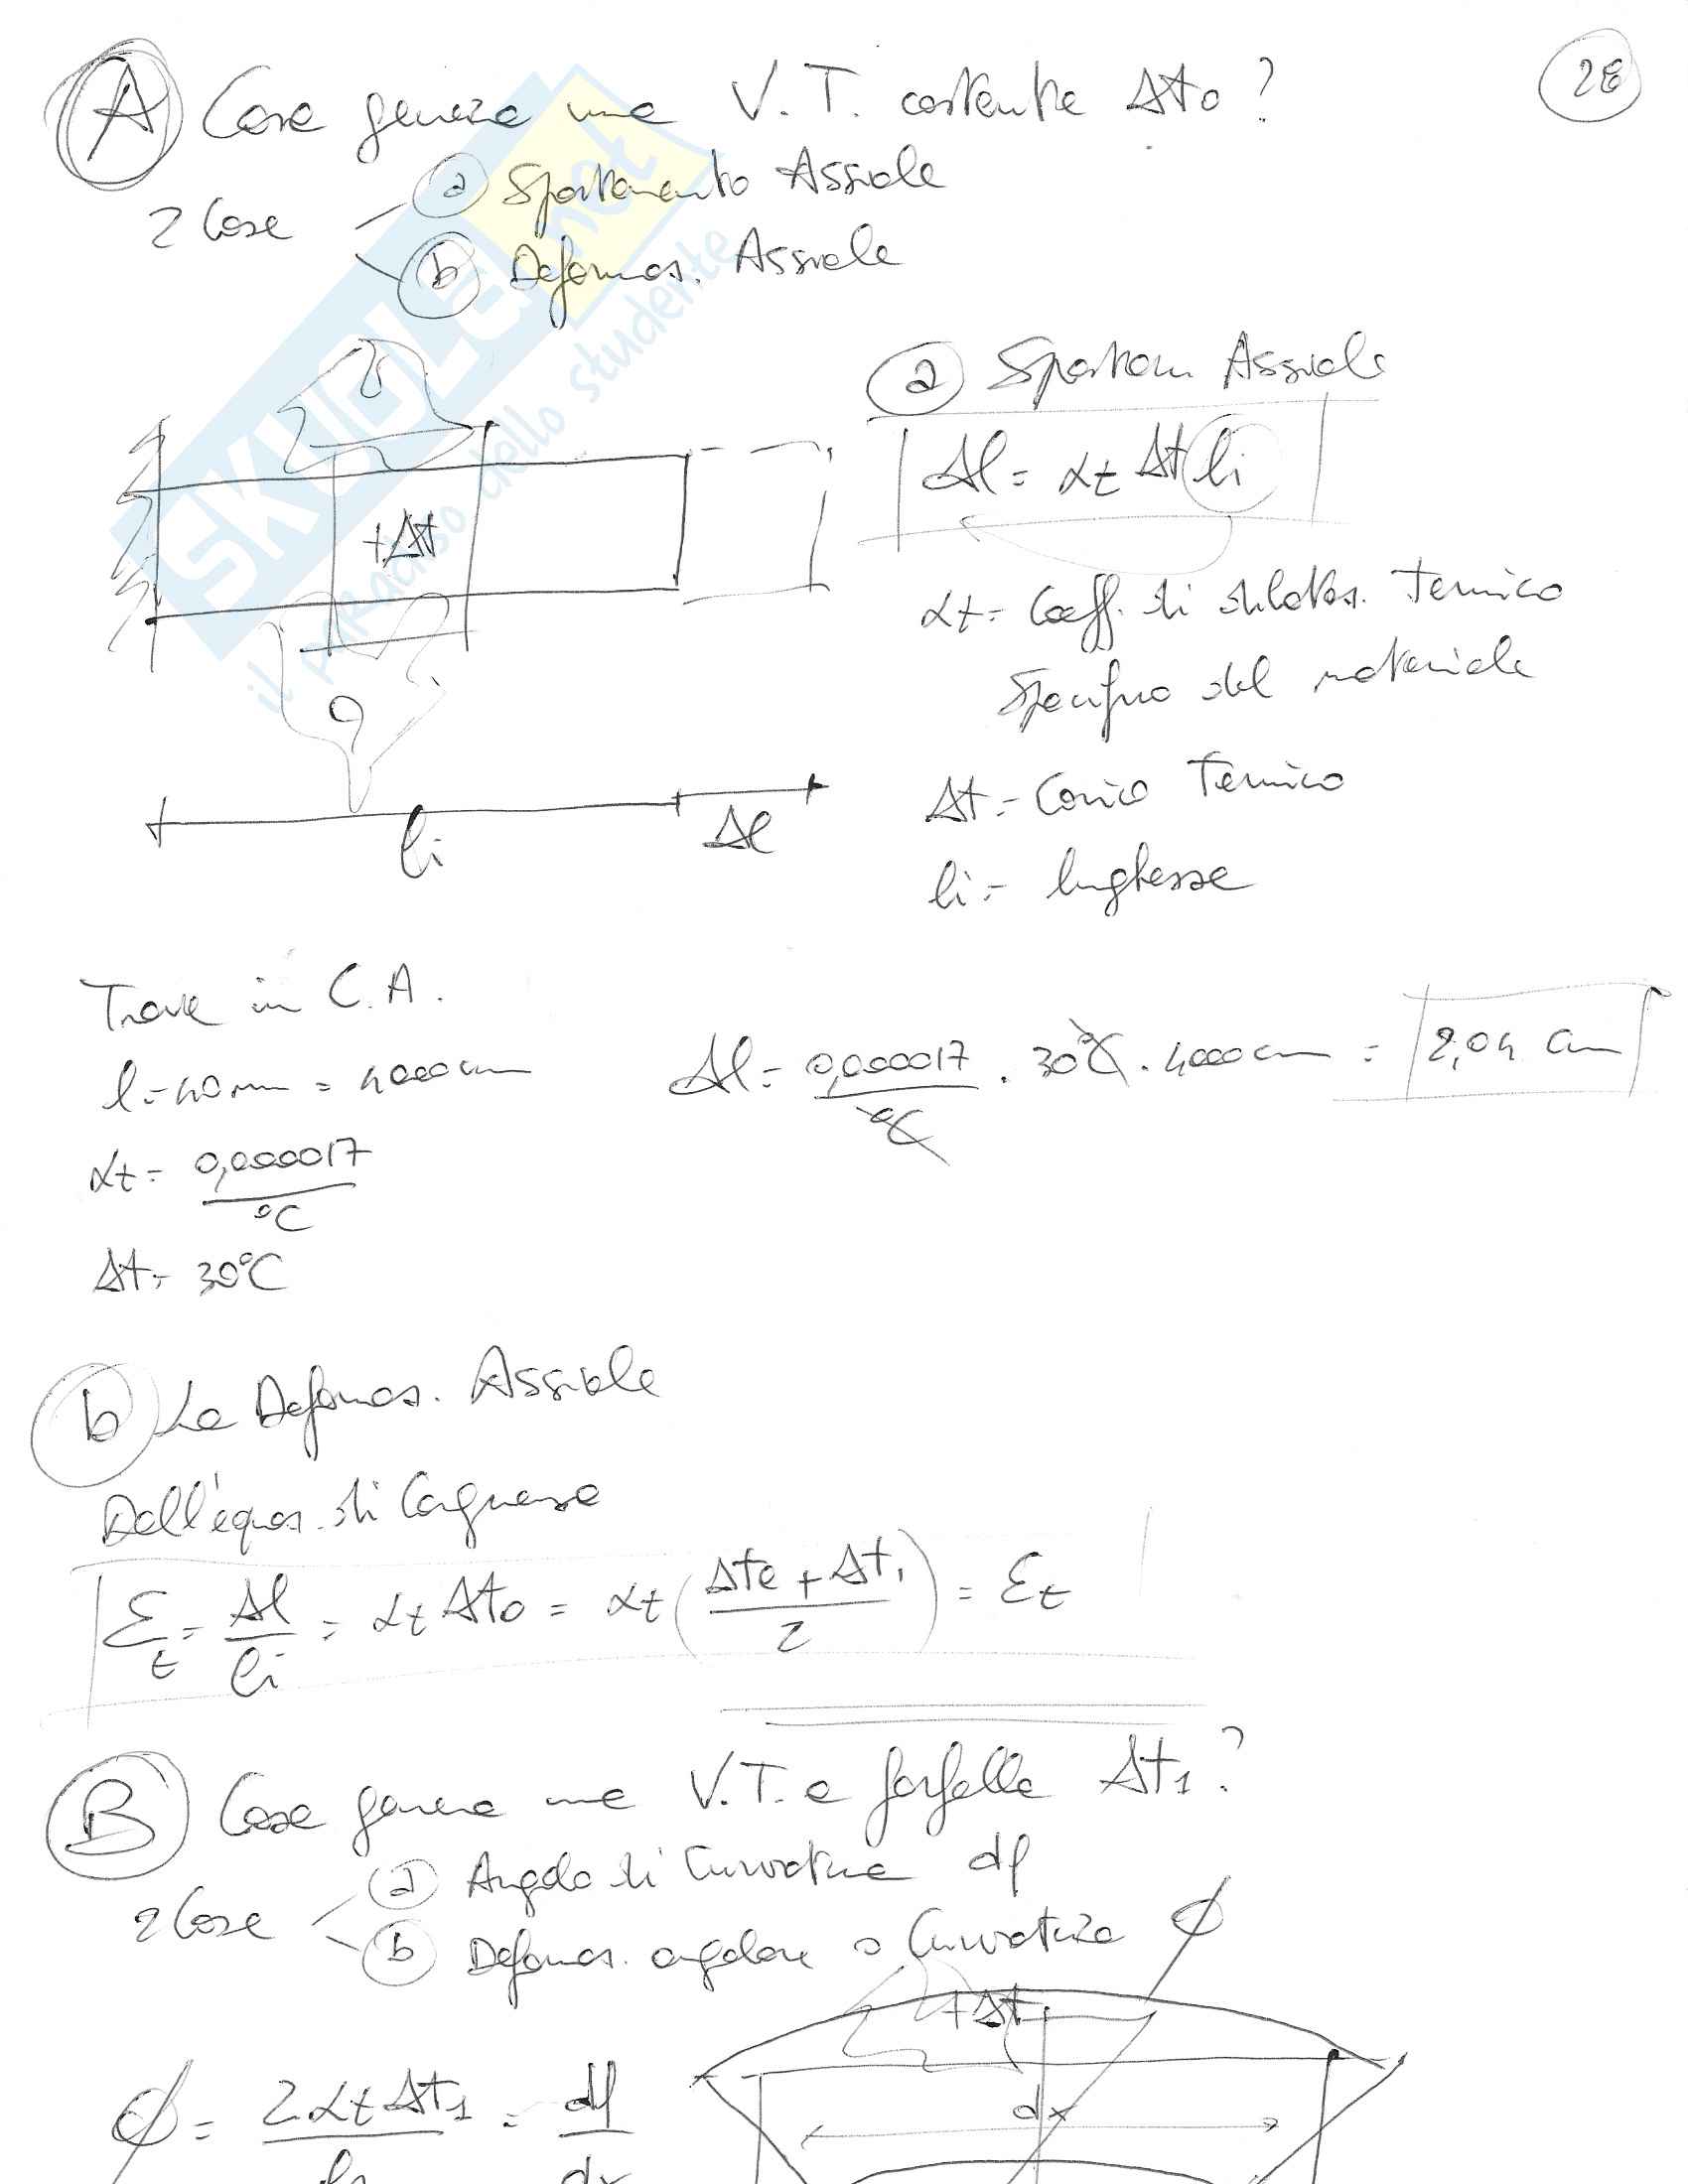 A Cosa genera una V.T. costante Δt0?
28
2 Cose
a Spostamento Assiale
b Deformaz. Assiale
SKUOLA.net
il PARadiso dello studente
a Spostam Assiale
Δl = αt Δt li
+Δt
αt = Coeff. di dilataz. termico
Specifico del materiale
Δt = Carico Termico
li = lunghezza
li Δl
Trave in C.A.
l = 40 m = 4000 cm
Δl = 0,000017/°C · 30°C · 4000 cm = 2,04 cm
αt = 0,000017/°C
Δt = 30°C
b La Deformaz. Assiale
Dall'equaz. di Congruenza
εt = Δl/li = αt Δt0 = αt (Δte + Δti / 2) = εt
B Cosa genera una V.T. a farfalla Δt1?
2 Cose
a Angolo di Curvatura dφ
b Deformaz. angolare o Curvatura ϕ
+Δt
dx
ϕ = 2 αt Δt1 / h = dφ / dx